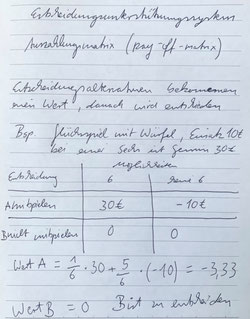 Entscheidungsunterstützungssystem
Auszahlungsmatrix (pay-off-matrix)
Entscheidungsalternativen bekommen
einen Wert, danach wird entschieden
Bsp. Glücksspiel mit Würfel, Einsatz 10€
bei einer Sechs ist Gewinn 30€
Möglichkeiten
Entscheidung 6 keine 6
A mitspielen 30€ -10€
B nicht mitspielen 0 0
Wert A = 1/6 · 30 + 5/6 · (-10) = -3,33
Wert B = 0 B ist zu entscheiden